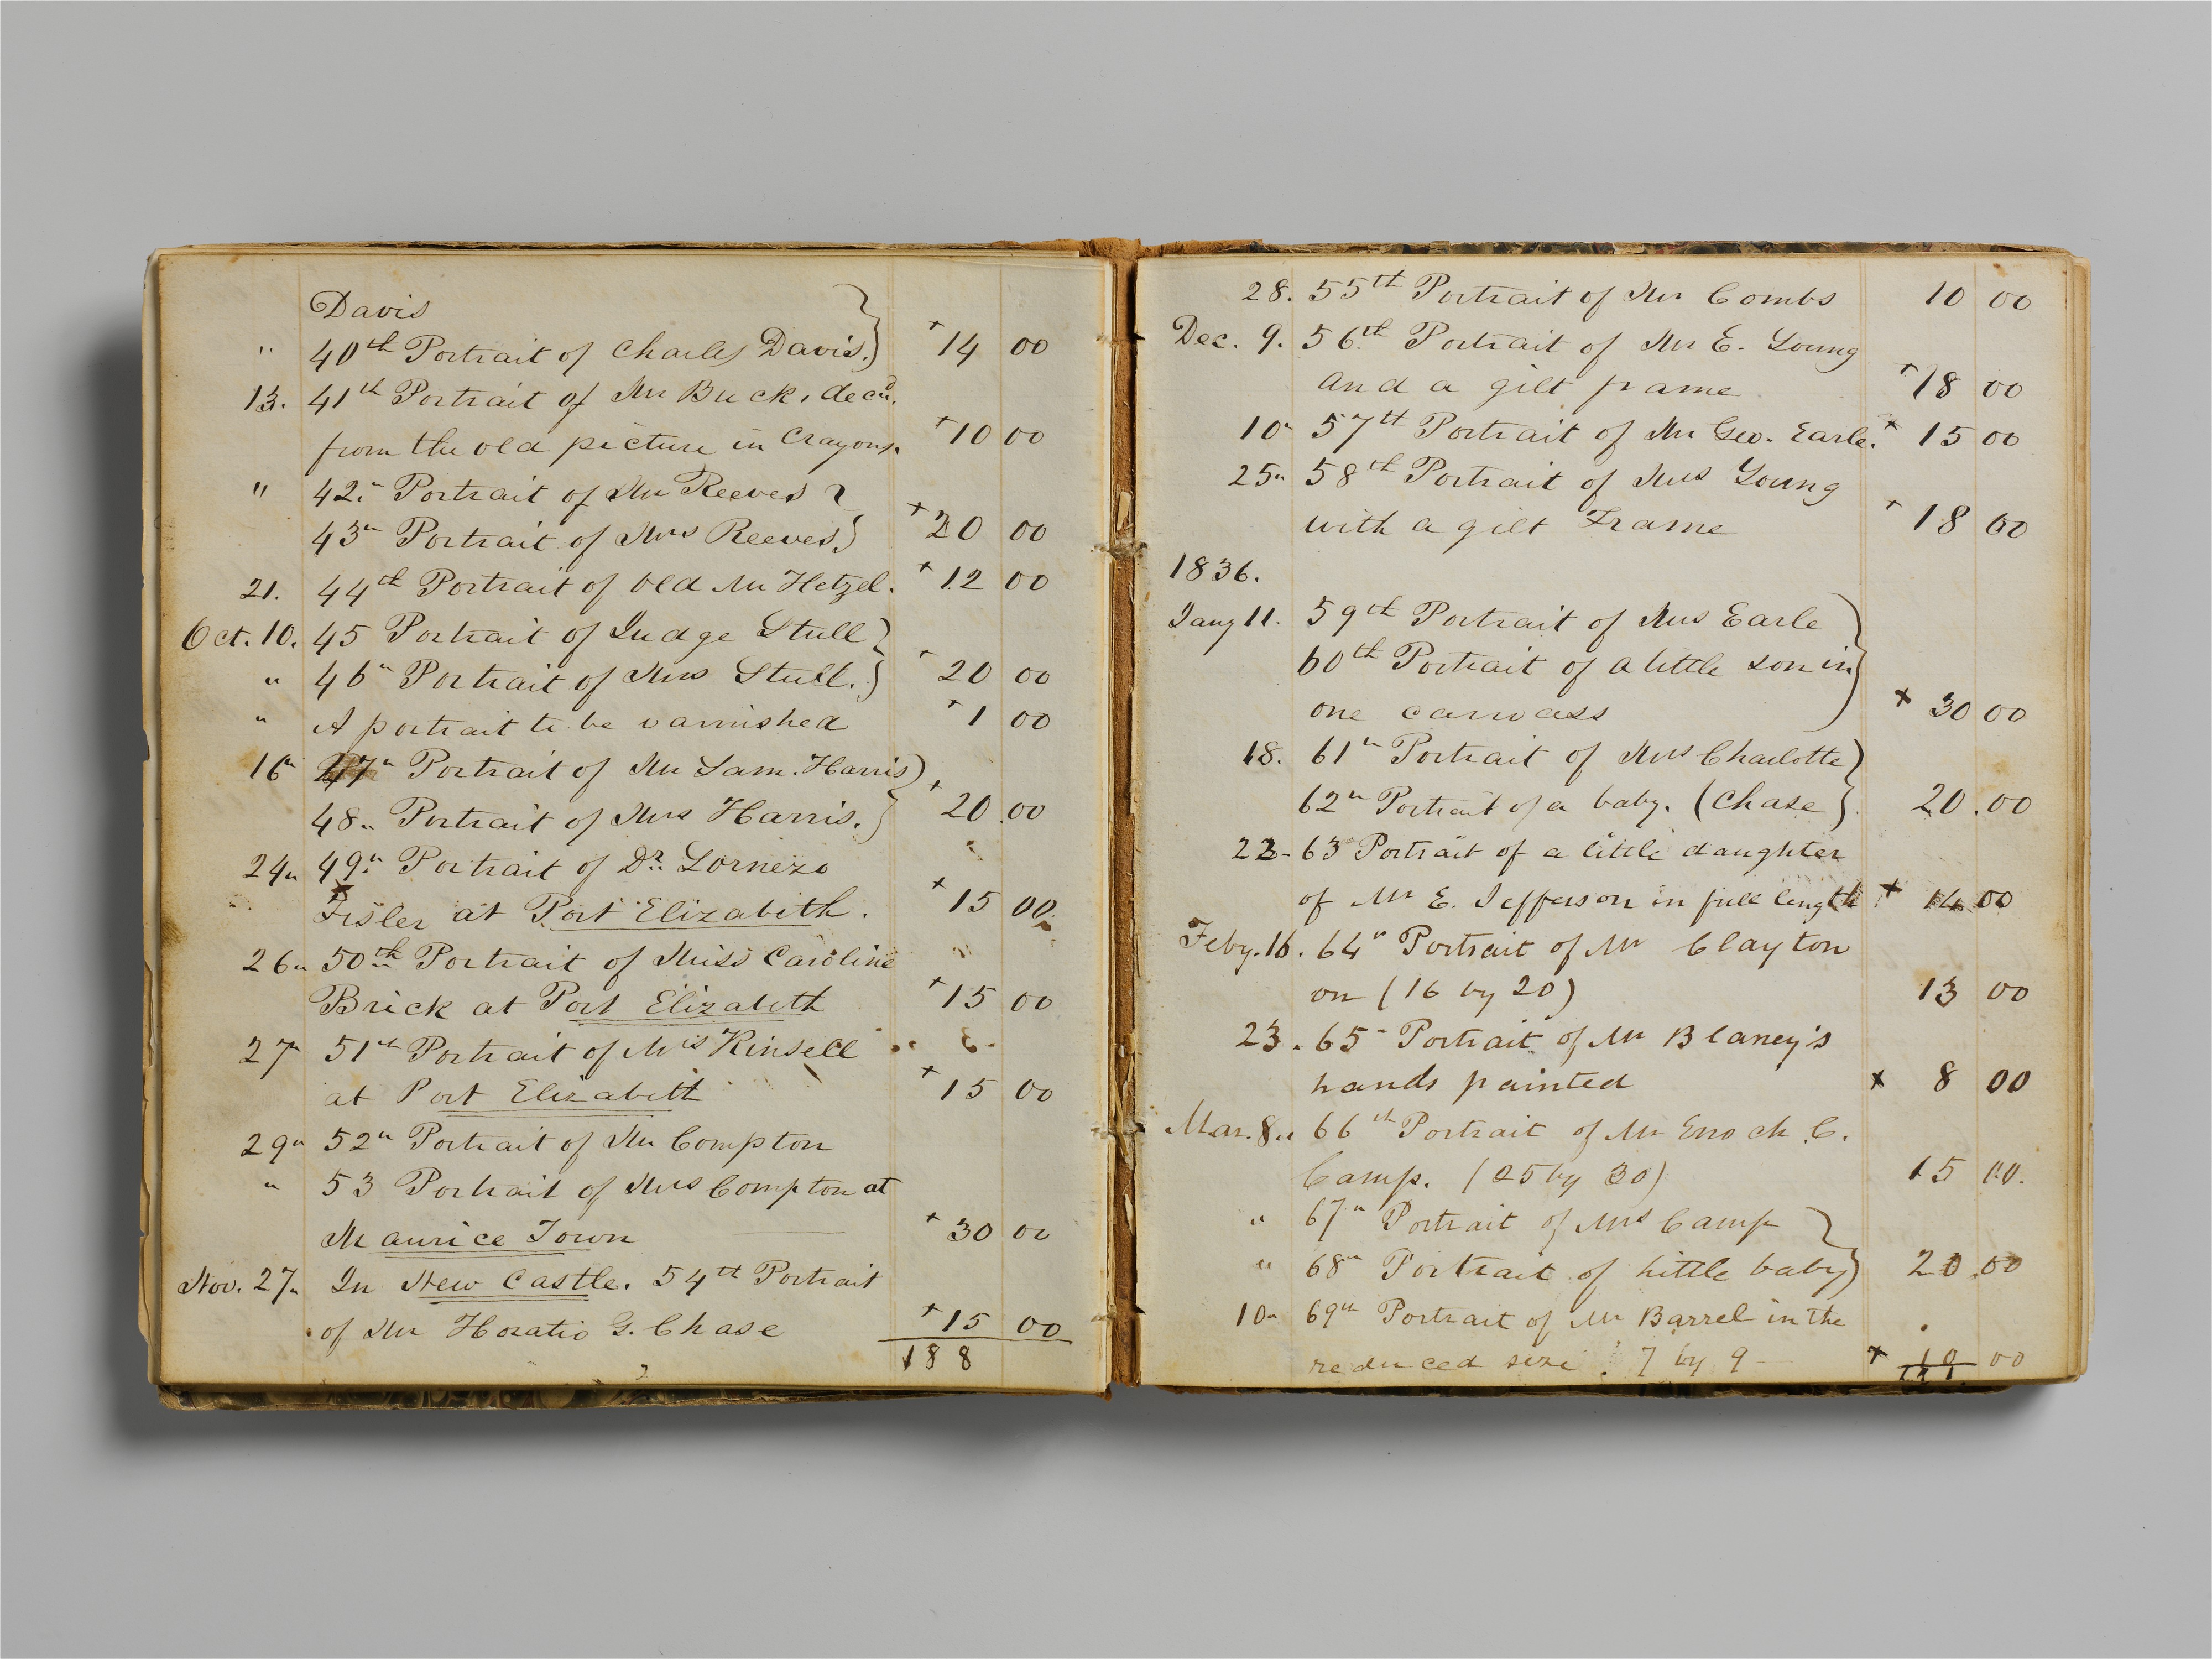 Davis
" 40th Portrait of Charles Davis. +14 00
13. 41th Portrait of Mr Buck, decd.
from the old picture in Crayons. +10 00
" 42" Portrait of Mr Reeves
43" Portrait of Mrs Reeves +20 00
21. 44th Portrait of Old Mr Hetzel. +12 00
Oct. 10. 45 Portrait of Judge Stull
" 46" Portrait of Mrs Stull. +20 00
" A portrait to be varnished +1 00
16" 47" Portrait of Mr Sam. Harris
48" Portrait of Mrs Harris. +20 00
24" 49" Portrait of Dr. Lornezo
Fisler at Port Elizabeth. +15 00
26" 50th Portrait of Miss Caroline
Brick at Port Elizabeth +15 00
27" 51th Portrait of Mrs Kinsell
at Port Elizabeth +15 00
29" 52" Portrait of Mr Compton
" 53 Portrait of Mrs Compton at
Maurice Town +30 00
Nov. 27" In New Castle. 54th Portrait
of Mr Horatio G. Chase +15 00
188
28. 55th Portrait of Mr Combs 10 00
Dec. 9. 56th Portrait of Mr E. Young
and a gilt frame +18 00
10" 57th Portrait of Mr Geo. Earle. + 15 00
25" 58th Portrait of Mrs Young
with a gilt Frame +18 00
1836.
Jany 11. 59th Portrait of Mrs Earle
60th Portrait of a little son in
one canvass x 30 00
18. 61" Portrait of Mrs Charlotte
62" Portrait of a baby. (Chase 20.00
22- 63 Portrait of a little daughter
of Mr E. Jefferson in full length + 14 00
Feby. 16. 64" Portrait of Mr Clayton
on (16 by 20) 13 00
23. 65" Portrait of Mr Blaney's
hands painted x 8 00
Mar. 8" 66th Portrait of Mr Enoch C.
Camp. (25 by 30) 15 00.
" 67" Portrait of Mrs Camp
" 68" Portrait of little baby 20.00
10" 69th Portrait of Mr Barrel in the
reduced size. 7 by 9 x 10 00